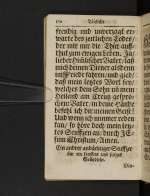 freudig und unverzagt er-
warte des zeitlichen Todes/
der mir nur die Thür auff-
thut zum ewigen Leben. Ja/
lieber himlischer Vater/ laß
mich deinen Diener also im
Friede fahren/ und gieb/
daß mein letztes Wort sey/
welches dein Sohn mein
Heiland am Creutz gespro-
chen: Vater, in deine Hände
befehl ich dir meinen Geist!
Und wenn ich nimmer reden
kan/ so höre doch mein letz-
tes Seufftzen an: durch JE-
sum Christum, Amen.
Ein andere andächtiger Seufftzer
Gebetlein.